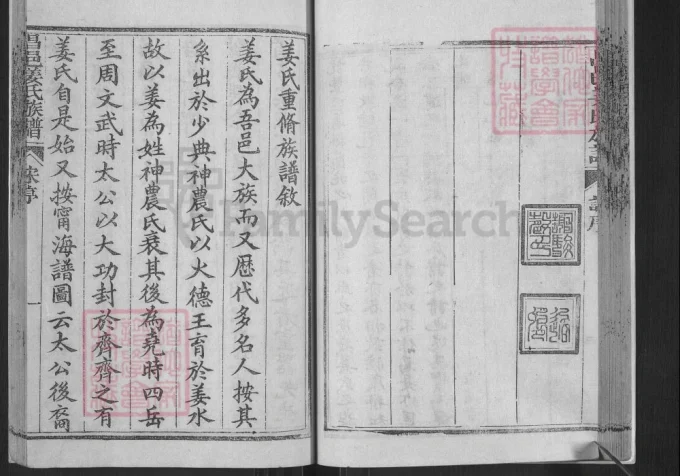 姜氏重脩族譜敘
姜氏為吾邑大族而又歷代多名人按其
系出於少典神農氏以火德王育於姜水
故以姜為姓神農氏衰其後為堯時四岳
至周文武時太公以大功封於齊齊之有
姜氏自是始又按甯海譜圖云太公後裔
昌邑姜氏族譜
FamilySearch